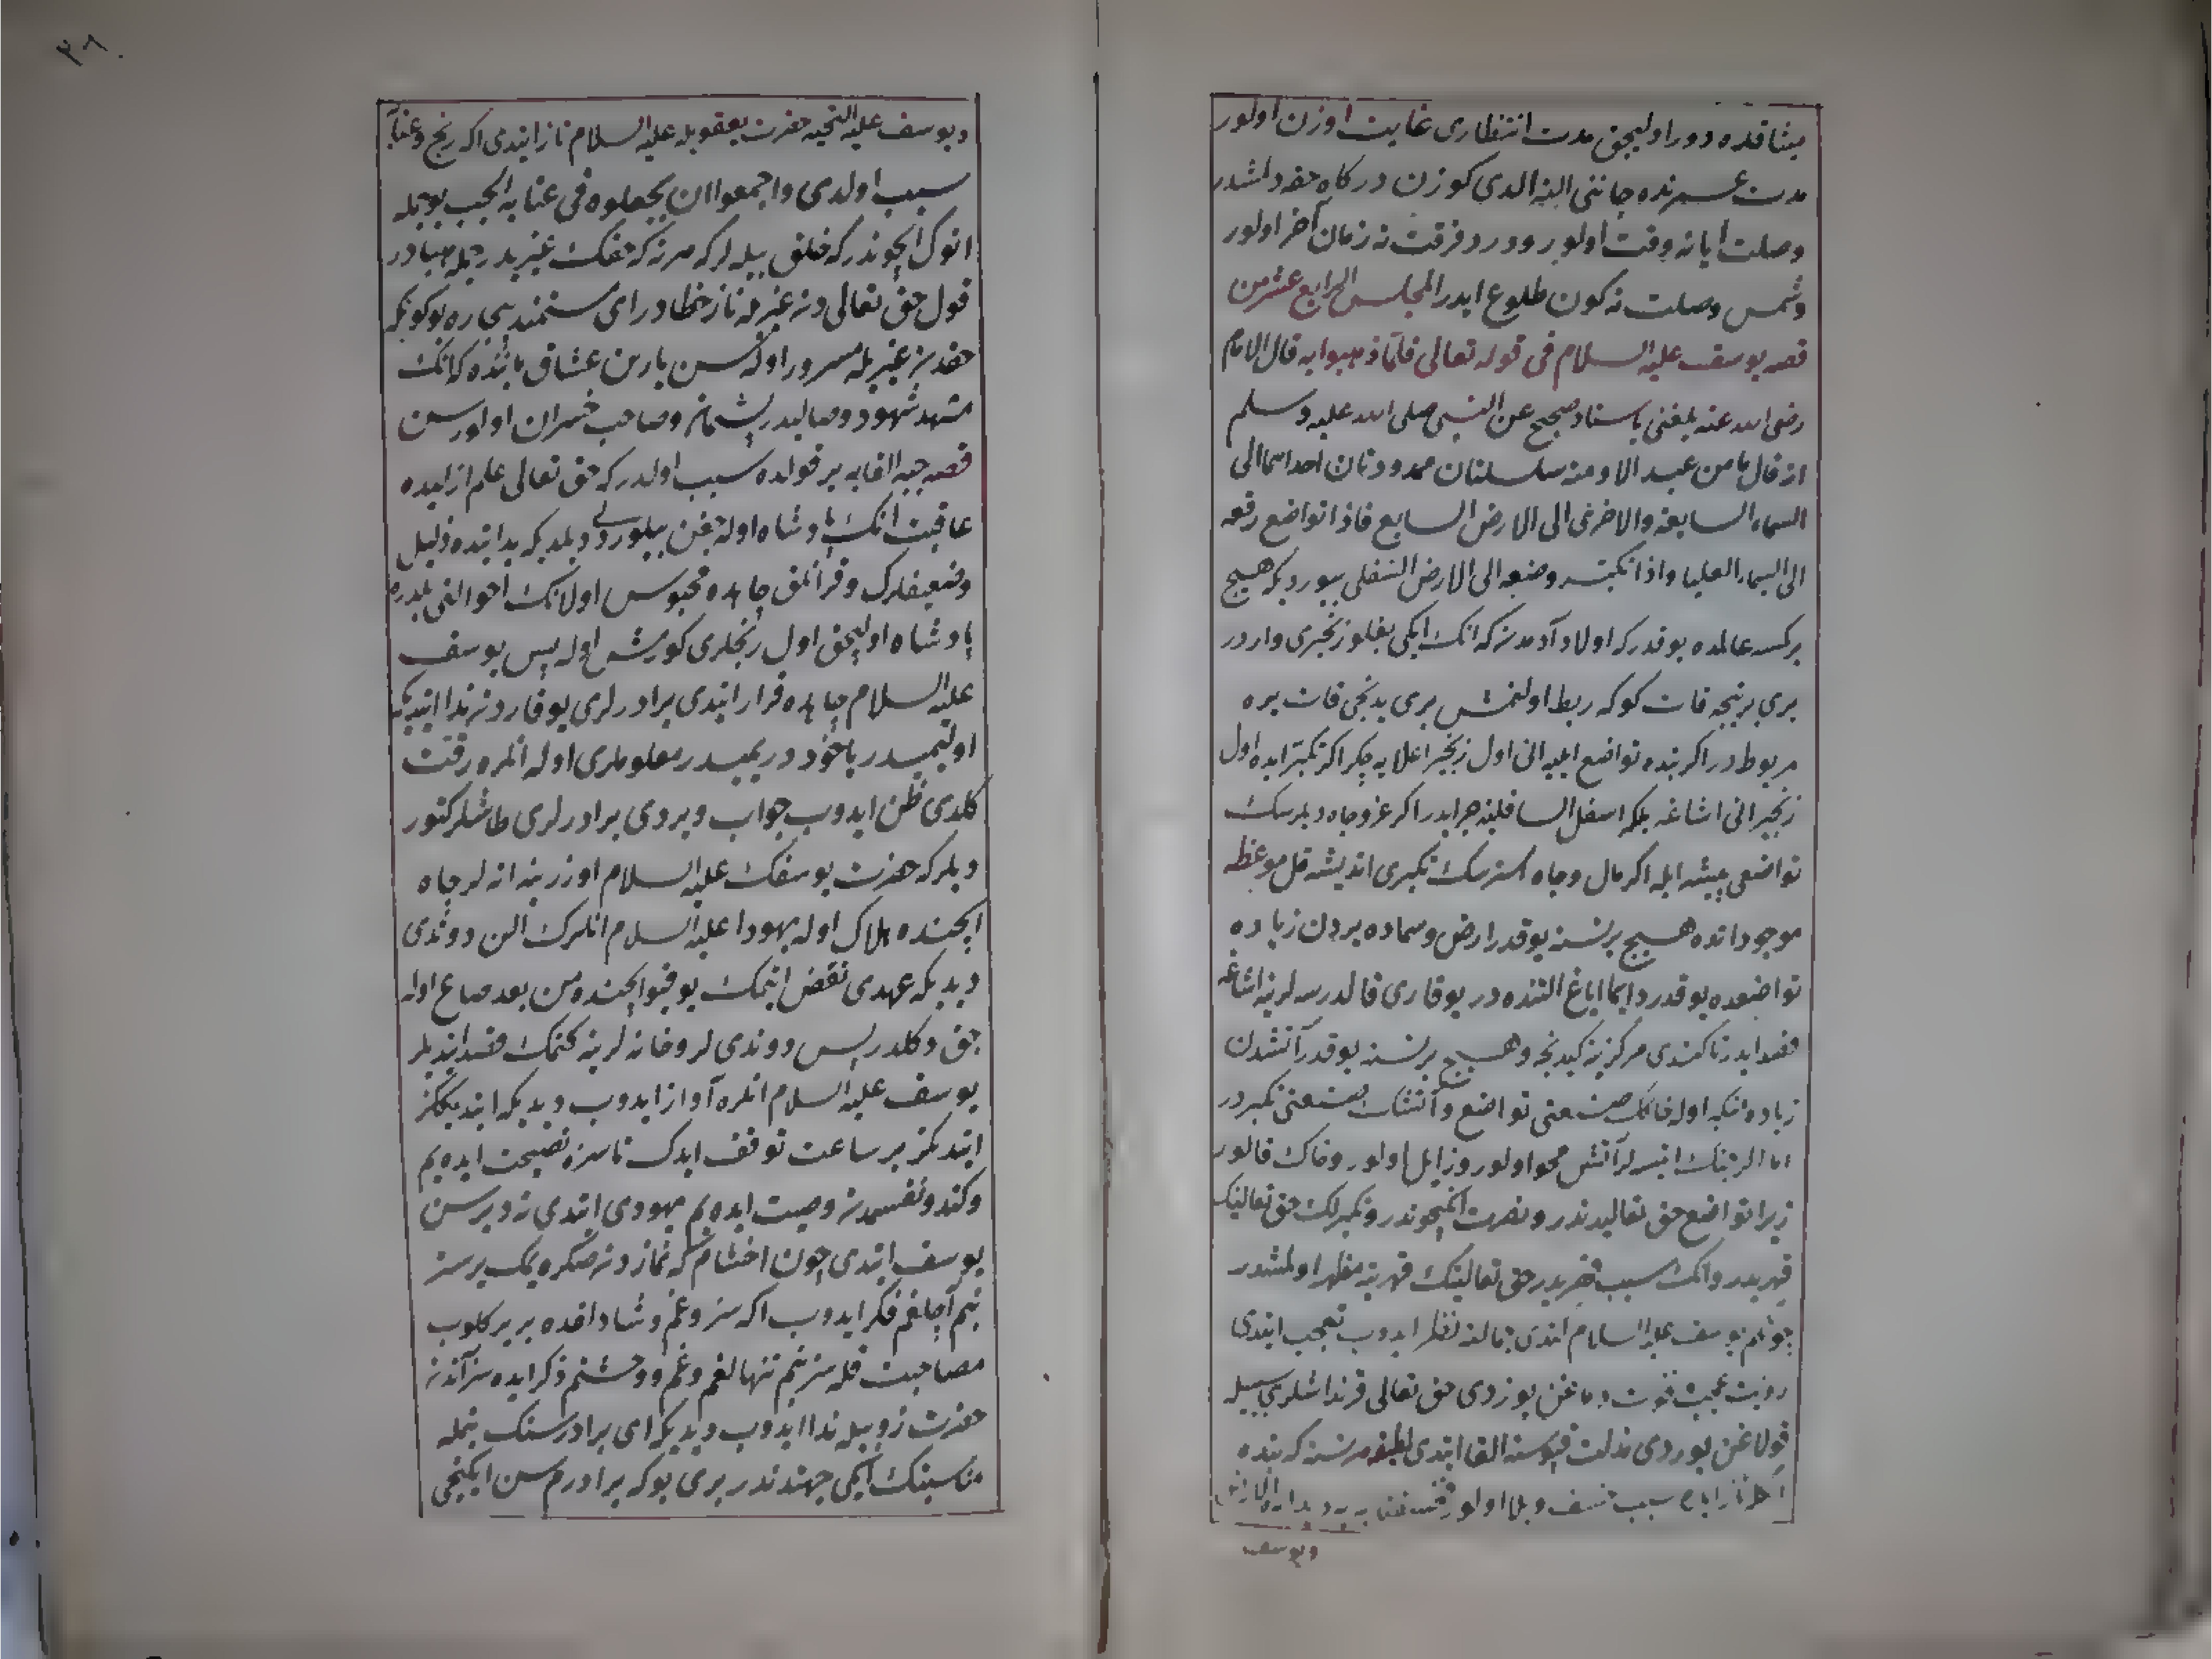 میثاقدن دور اولیجق مدت انتظاری غایت اوزن اولور
مدت عمرنده جاننی الینه الدی کوزن درکاه حقه دکمشدر
وصلت ایا نه وقت اولور و درد فرقت نه زمان آخر اولور
وشمس وصلت نه کون طلوع ایدر المجلس الرابع عشر من
قصه یوسف علیه السلام فی قوله تعالی فلما ذهبوا به قال الامام
رضی الله عنه بلغنی باسناد صحیح عن النبی صلی الله علیه وسلم
انه قال ما من عبد الا و منه سلسلتان ممدودتان احداهما الی
السماء السابعة والاخری الی الارض السابع فاذا تواضع رفعه
الی السماء العلیا واذا تکبر وضعه الی الارض السفلی بیوردیکه هیچ
برکسه عالمده یوقدر که اولاد آدمدن که انک ایکی بغلو زنجیری واردر
بری برنجه قات کوکه ربط اولنمش بری یدنجی قات یره
مربوطدر اکر بنده تواضع ایلیه انی اول زنجیر اعلایه چکر اکر تکبر ایده اول
زنجیر انی اشاغه بلکه اسفل السافلینه جر ایدر اکر عز وجاه دیلرسک
تواضعی پیشه ایله اکر مال وجاه استرسک تکبری اندیشه قل موعظه
موجوداتده هیچ برنسنه یوقدر ارض وسماده یردن زیاده
تواضعده یوقدر دایما ایاغ التنده در یوقاری قالدرسه لر ینه اشاغه
قصد ایدر تا کندی مرکزینه کیدنجه و هیچ برنسنه یوقدر آتشدن
زیاده متکبر اوله خاکک صفتی تواضع و آتشک صفتی تکبردر
اما ایرتنک ایتسه لر آتش محو اولور و زایل اولور و خاک قالور
زیرا تواضع حق تعالیدندر و نصرت انکچوندر و تکبرلک حق تعالینک
قهریدر و انک سبب قهریدر حق تعالینک قهرینه مظهر اولمشدر
چونکم یوسف علیه السلام کندی جمالنه نظر ایدوب تعجب ایتدی
رؤیت قوت دماغن بوزدی حق تعالی قرنداشلری سببیله
قولاغن بوردی مذلت قیوسنه القا ایتدی لطیفه هر نسنه که بنده
ویوسف
٣٨
ویوسف علیه التحیه حضرت یعقوبله علیه السلام ناز ایتدی اکه رنج وعنایه
سبب اولدی واجمعوا ان یجعلوه فی غیابة الجب بو جمله
انوک ایچوندر که خلق بیله لر که هر نه که حقک غیریدر جمله هبادر
قول حق تعالی دن غیریله ناز خطادر ای مستمند بیچاره بو کونکه
حقدن غیریله مسرور اوله سن یارین عشاق یاننده که انک
مشهد شهود وصالیدر پشیمان وصاحب خسران اولورسن
قصه جبه القایه بر قولده سبب اولدر که حق تعالی علم ازلیده
عاقبت انک پادشاه اوله جغن بیلوردی دیلدیکه بدایتده ذلیل
وضعیفلرک وقرانلق چاهده محبوس اولانک احوالنی بلدره
پادشاه اولیجق اول رنجلری کورمش اوله پس یوسف
علیه السلام چاهده قرار ایتدی برادرلری یوقاردن ندا ایتدیکه
اولیمیدر یاخود دریمیدر معلوملری اوله انلره رقت
کلدی ظن ایدوب جواب ویردی برادرلری طاشلر کتور
دیلر که حضرت یوسفک علیه السلام اوزرینه اته لر چاه
ایچنده هلاک اوله یهودا علیه السلام انلرک الن دوتدی
دیدیکه عهدی نقض ایتمک بو قیو ایچنده من بعد صاغ اوله
جق دکلدر پس دوندی لر وخانه لرینه کتمک قصد ایتدیلر
یوسف علیه السلام انلره آواز ایدوب دیدیکه ایتدیککز
ایتدیکز بر ساعت توقف ایدک تا سزه نصیحت ایده یم
وکندو نفسمدن وصیت ایده یم یهودی ایتدی نه دیرسن
یوسف ایتدی چون اخشام که نمازدن صکره یمک یرسز
بنم آچلغم فکر ایدوب اکه سز وغم وشادلقده بر بر کلوب
مصاحبت قله سز بنم تنهالغم وغم ووحشتم ذکر ایده سز آندن
حضرت زوبیله ندا ایدوب دیدیکه ای برادر سنک بنمله
مناسبتک ایکی جهتدندر بری بو که برادرم سن ایکنجی